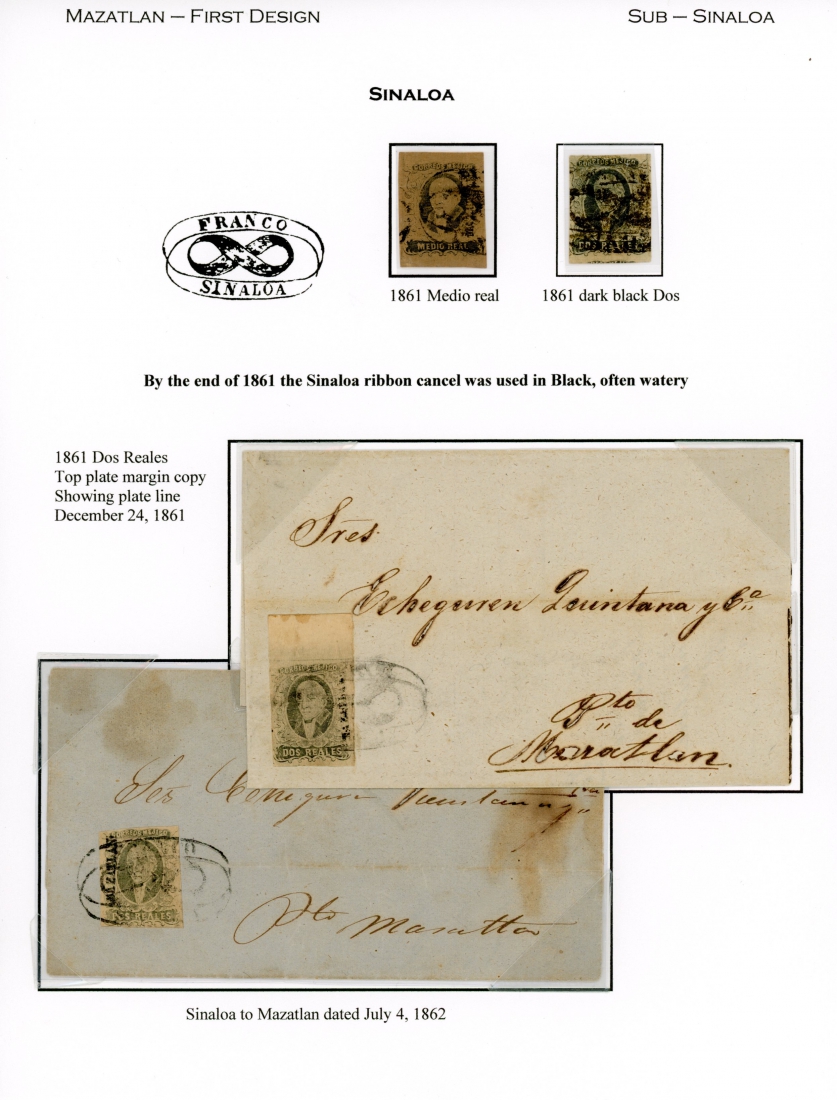 MAZATLAN – FIRST DESIGN
SUB – SINALOA
SINALOA
FRANCO
SINALOA
CORREOS MEJICO
MEDIO REAL
CORREOS MEJICO
DOS REALES
1861 Medio real
1861 dark black Dos
By the end of 1861 the Sinaloa ribbon cancel was used in Black, often watery
1861 Dos Reales
Top plate margin copy
Showing plate line
December 24, 1861
Sres
Echeguren Quintana y Cª
CORREOS MEJICO
MAZATLAN
DOS REALES
Pto de
Mazatlan.
Echeguren Quintana y
CORREOS MEJICO
MAZATLAN
DOS REALES
Pto Mazatlan
Sinaloa to Mazatlan dated July 4, 1862